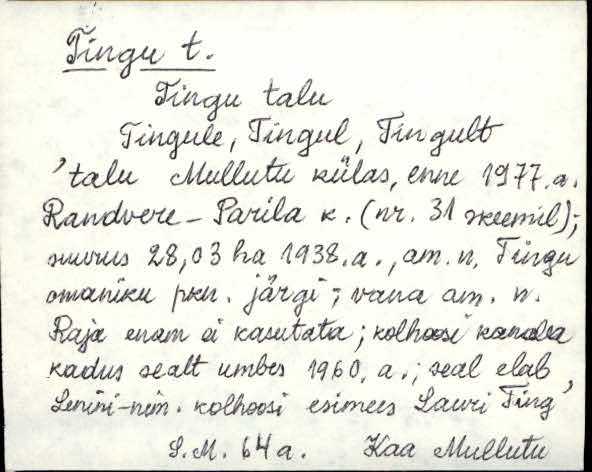 Tingu t.
Tingu talu
Tingule, Tingul, Tingult
'talu Mullutu külas, enne 1977.a.
Randvere - Parila k. (nr. 31 skeemil);
suurus 28,03 ha 1938.a., am. n. Tingu
omaniku pkn. järgi; vana am. n.
Raja enam ei kasutata; kolhoosi kanala
kadus sealt umbes 1960. a.; seal elab
Lenini-nim. kolhoosi esimees Lauri Ting'
S.M. 64 a. Kaa Mullutu